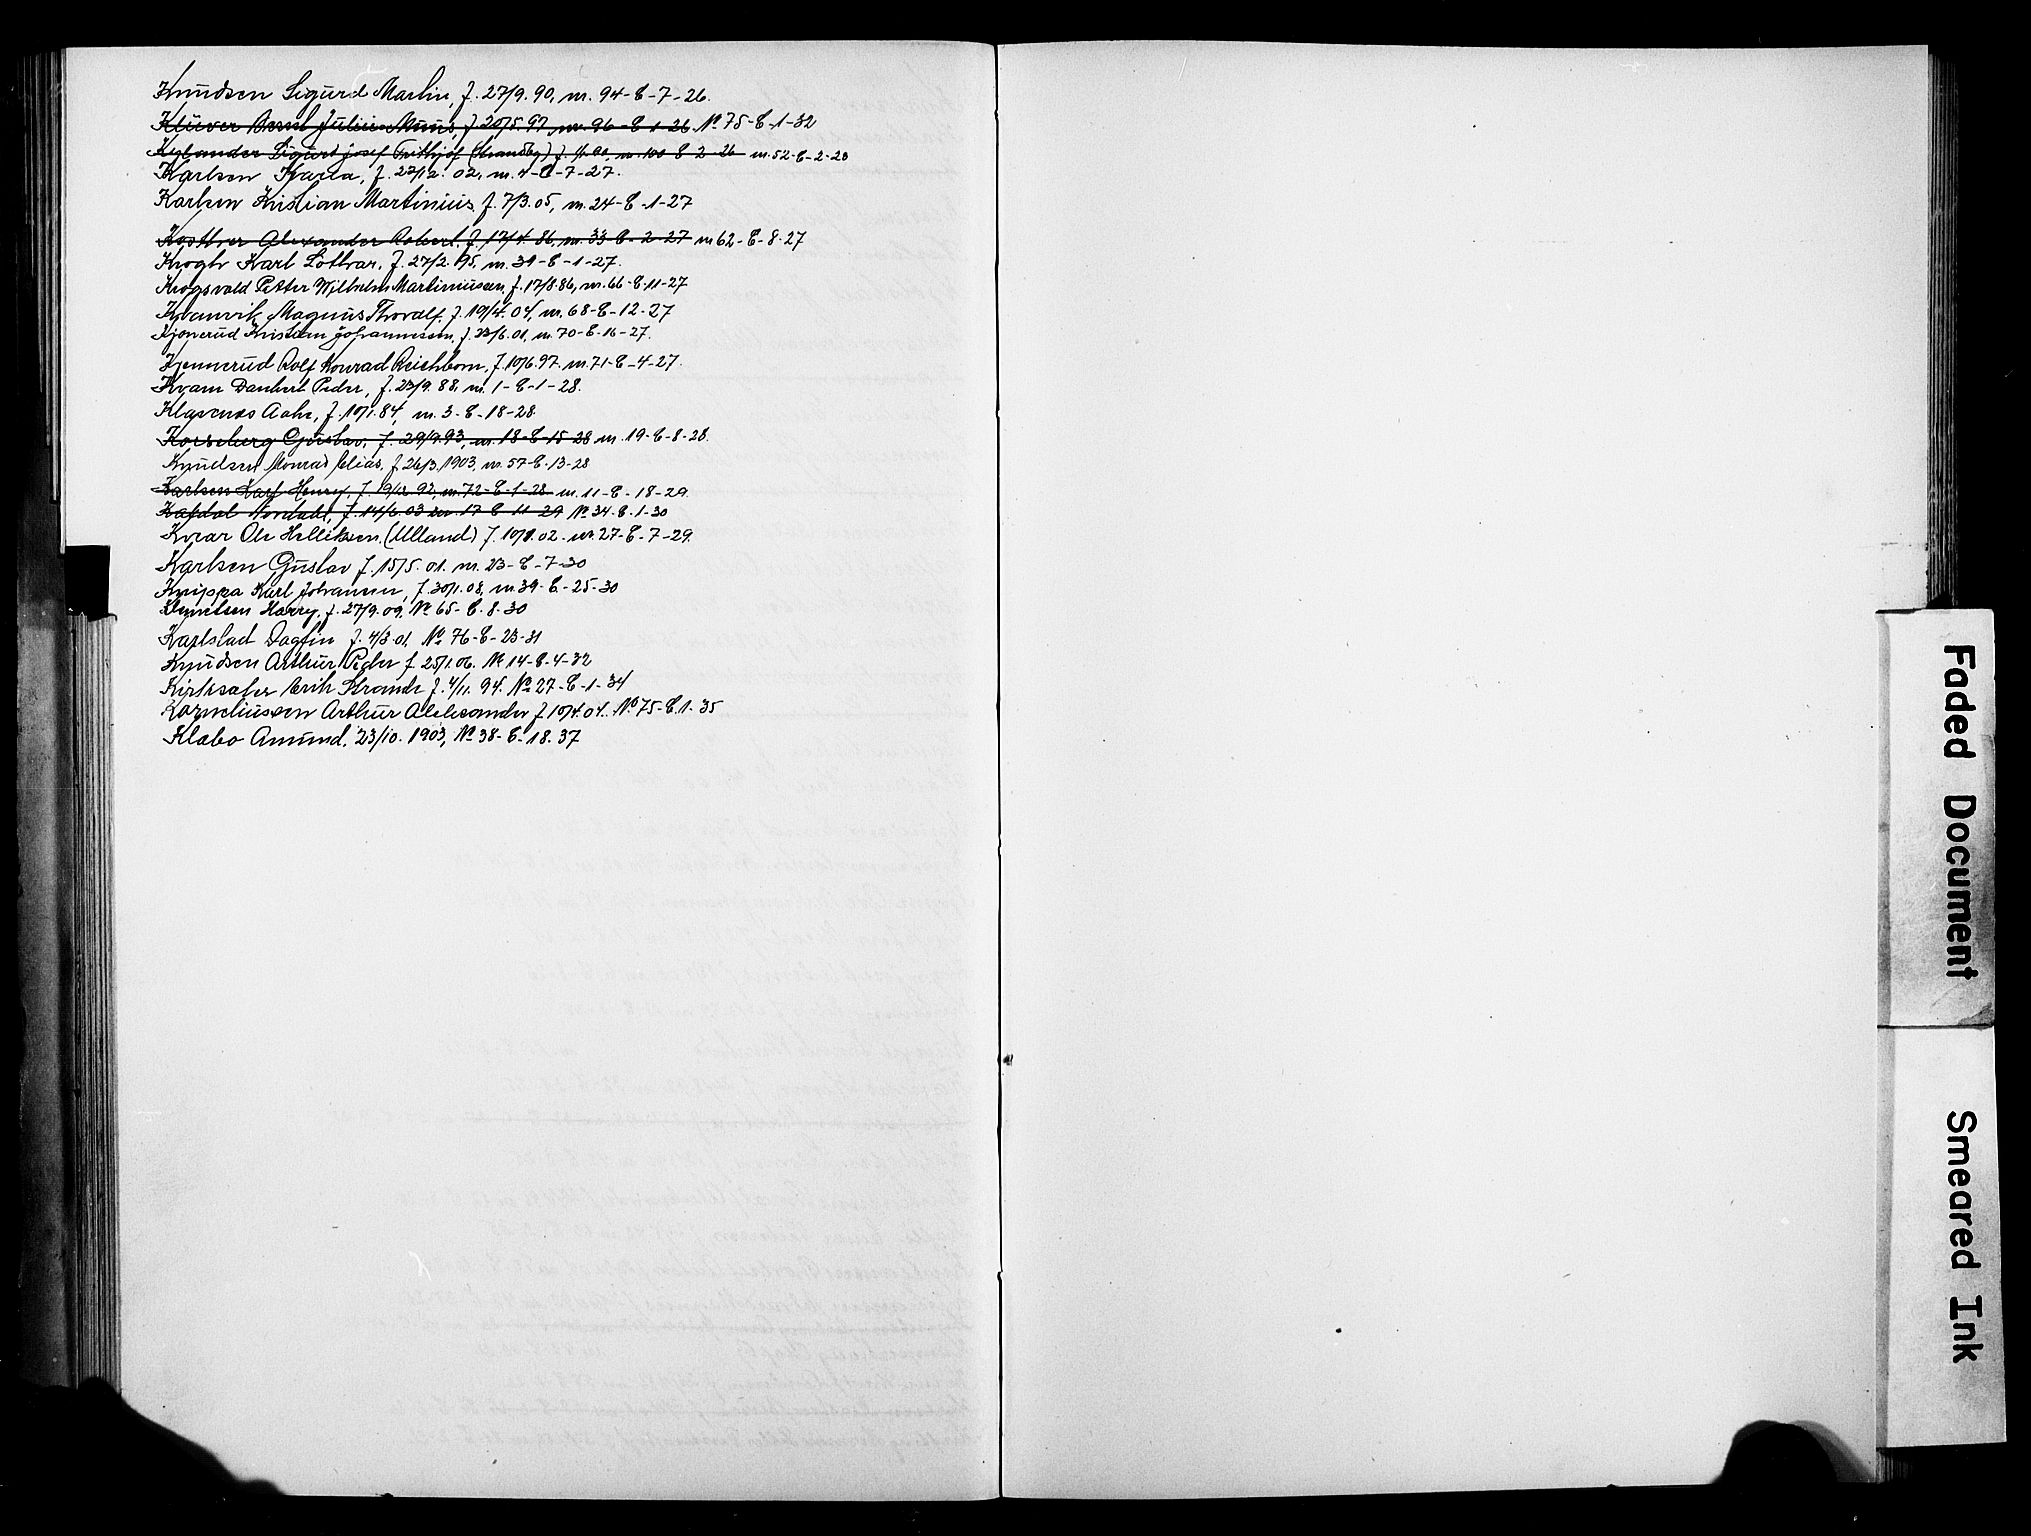 Knudsen Sigurd Martin, f. 27/9. 90, m. 94-E-7-26.
Klüver Bernt Julius Muus, f. 20/5. 97, m. 96-E-1-26 No 75-E-1-32
Kylander Sigurd Josef Frithjof (Strandby) f. 90, m. 100-E-2-26 m. 52-E-2-28
Karlsen Karla, f. 22/12. 02, m. 4-E-7-27.
Karlsen Kristian Martinius, f. 7/3. 05, m. 24-E-1-27
Alexander Robert, f. 17/4. 86, m. 33-E-2-27 m 62-E-8-27
Krogh Karl Lothar, f. 27/2. 95, m. 39-E-1-27.
Krogsvold Petter Wilhelm Martiniussen, f. 17/8. 86, m. 66-E-11-27
Kvamvik Magnus Thoralf, f. 19/4. 04, m. 68-E-12-27
Kjønerud Kristian Johannessen, f. 6. 01, m. 70-E-16-27.
Kjennerud Rolf Konrad Reichborn, f. 10/6. 97. m. 71-E-4-27.
Kvam Peder, f. 23/9. 88, m. 1-E-1-28.
Klavenes Aahr, f. 10/1. 84, m. 3-E-18-28.
Korseberg Gustav, f. 29/9. 93, m. 18-E-15-28 m. 19-E-8-28.
Knudsen Monrad Elias, f. 26/3. 1903, m. 57-E-13-28
Karlsen Karf Henry, f. 19/12. 92, m. 72-E-1-28 m. 11-E-18-29.
Nordahl, f. 14/6. 03 m. 17-E-11-29 No 34-E-1-30
Kvar Ole Helliksen (Ulland) f. 10/8. 02. m. 27-E-7-29.
Karlsen Gustav f. 15/5. 01. m. 23-E-7-30
Knippa Karl Johansen, f. 30/1. 08, m. 39-E-25-30
Harry, f. 27/9. 09, No 65-E.8.30
Karlstad Dagfin f. 4/3. 01, No 76-E-23-31
Knudsen Arthur Peder f. 25/1. 06. No 14-E-4-32
Kirksæter Erik Strande f. 4/11. 94. No 27-E-1-34
Korneliussen Arthur Aleksander f. 10/4. 04. No 75-E.1-35
Klabo Amund, 23/10. 1903, No 38-E-18.37
Faded Document
Smeared Ink